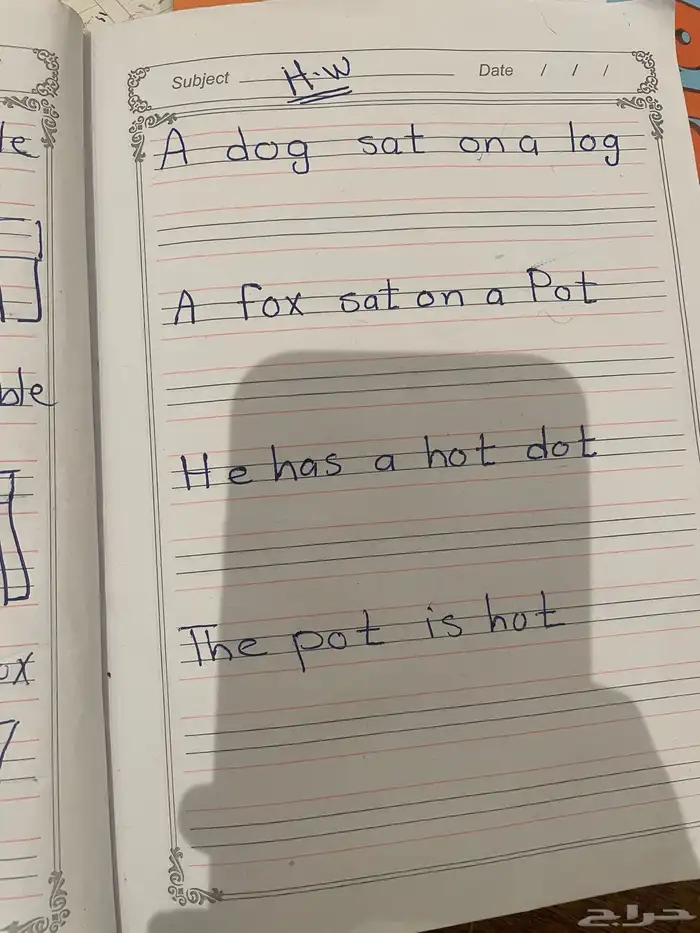 le
ble
ox
Subject H.W Date / / /
A dog sat on a log
A fox sat on a Pot
He has a hot dot
The pot is hot
حراج